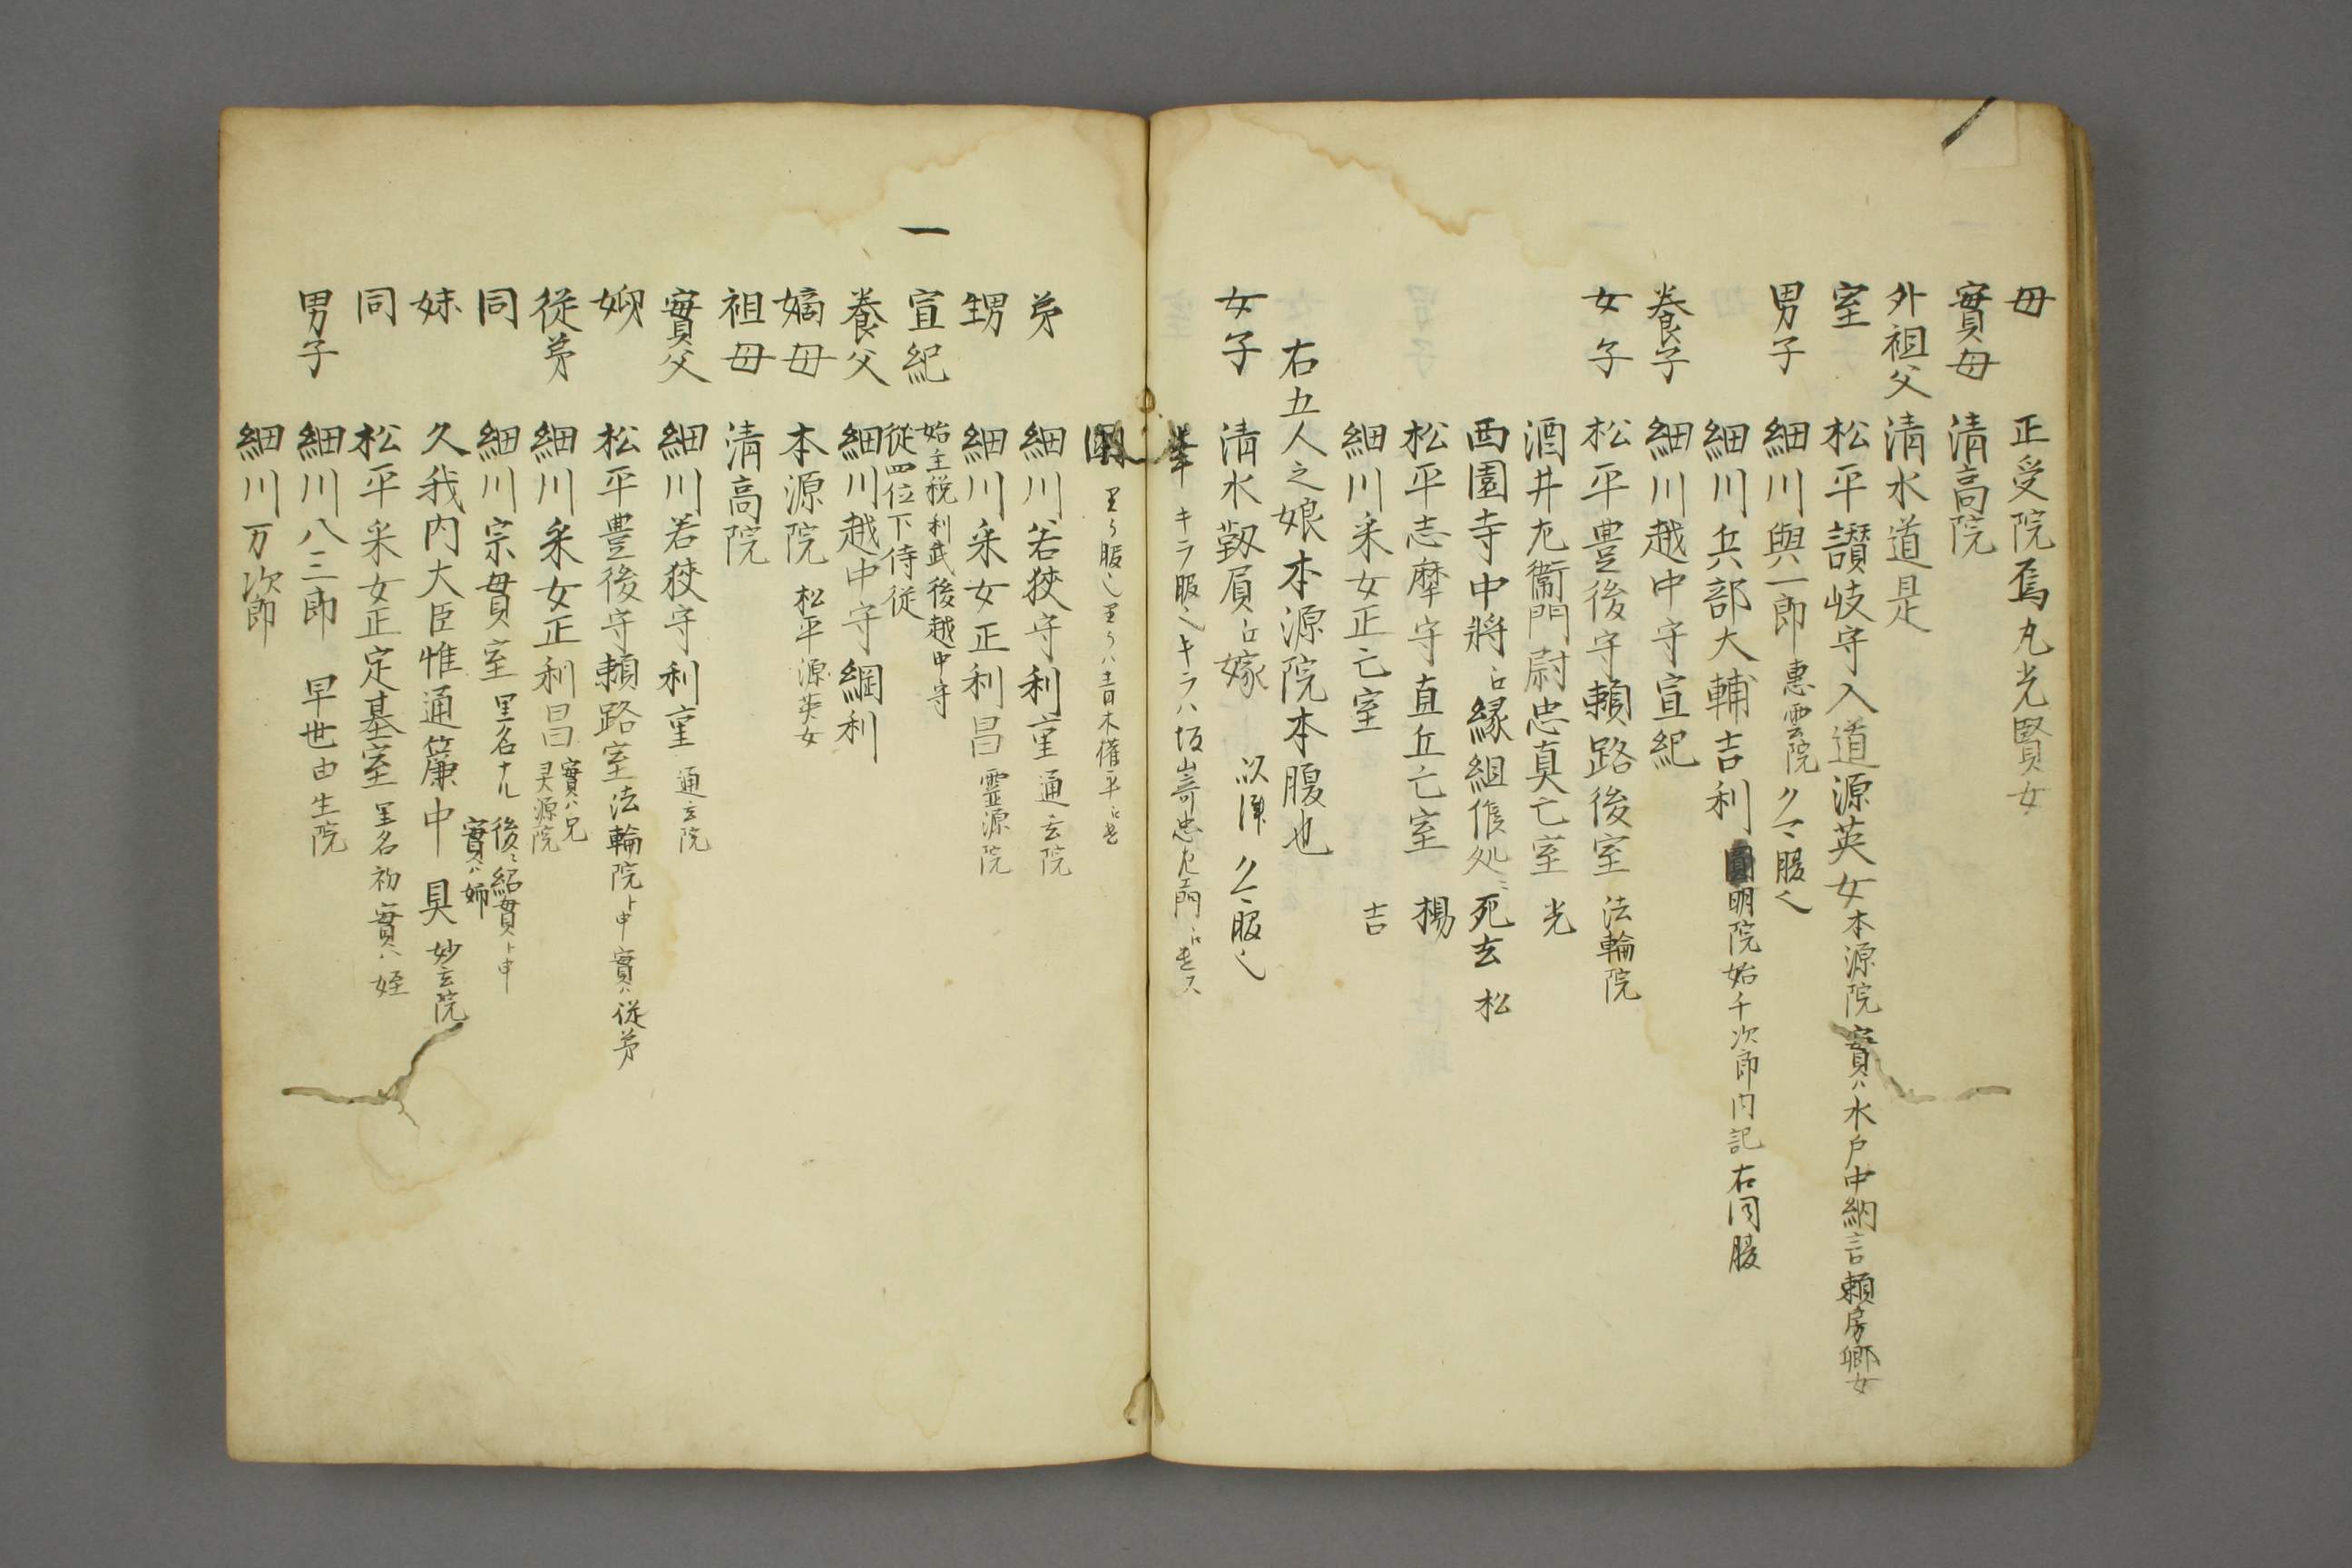 母 正受院烏丸光賢女
實母 清高院
外祖父 清水道是
室 松平讃岐守入道源英女本源院實ハ水戸中納言頼房卿女
男子 細川與一郎 惠雲院 久ニ腹也
細川兵部大輔吉利 圓明院始千次郎内記右同腹
養子 細川越中守宣紀
女子 松平豊後守頼路後室 法輪院
酒井左衛門尉忠真亡室 光
西園寺中将江縁組候処ニ死去 松
松平志摩守直丘亡室 楊
細川采女正亡室 吉
右五人之娘本源院本腹也
女子 清水靱屓江嫁
峯 キラ腹也キラハ坂㟢忠左衛門江遣ス
里う腹也里うハ青木権平江遣
弟 細川若狹守利重通玄院
甥 細川采女正利昌霊源院
一 宣紀 始主税利武後越中守
従四位下侍従
養父 細川越中守綱利
嫡母 本源院 松平源英女
祖母 清高院
實父 細川若狹守利重通玄院
嫂 松平豊後守頼路室法輪院ト申實ハ従弟
従弟 細川采女正利昌 實ハ兄 灵源院
同 細川宗貫室 里名ナル 後ニ紹貫ト申 實ハ姉
妹 久我内大臣惟通簾中 具 妙玄院
同 松平采女正定基室 里名初 實ハ姪
男子 細川八三郎 早世由生院
細川万次郎